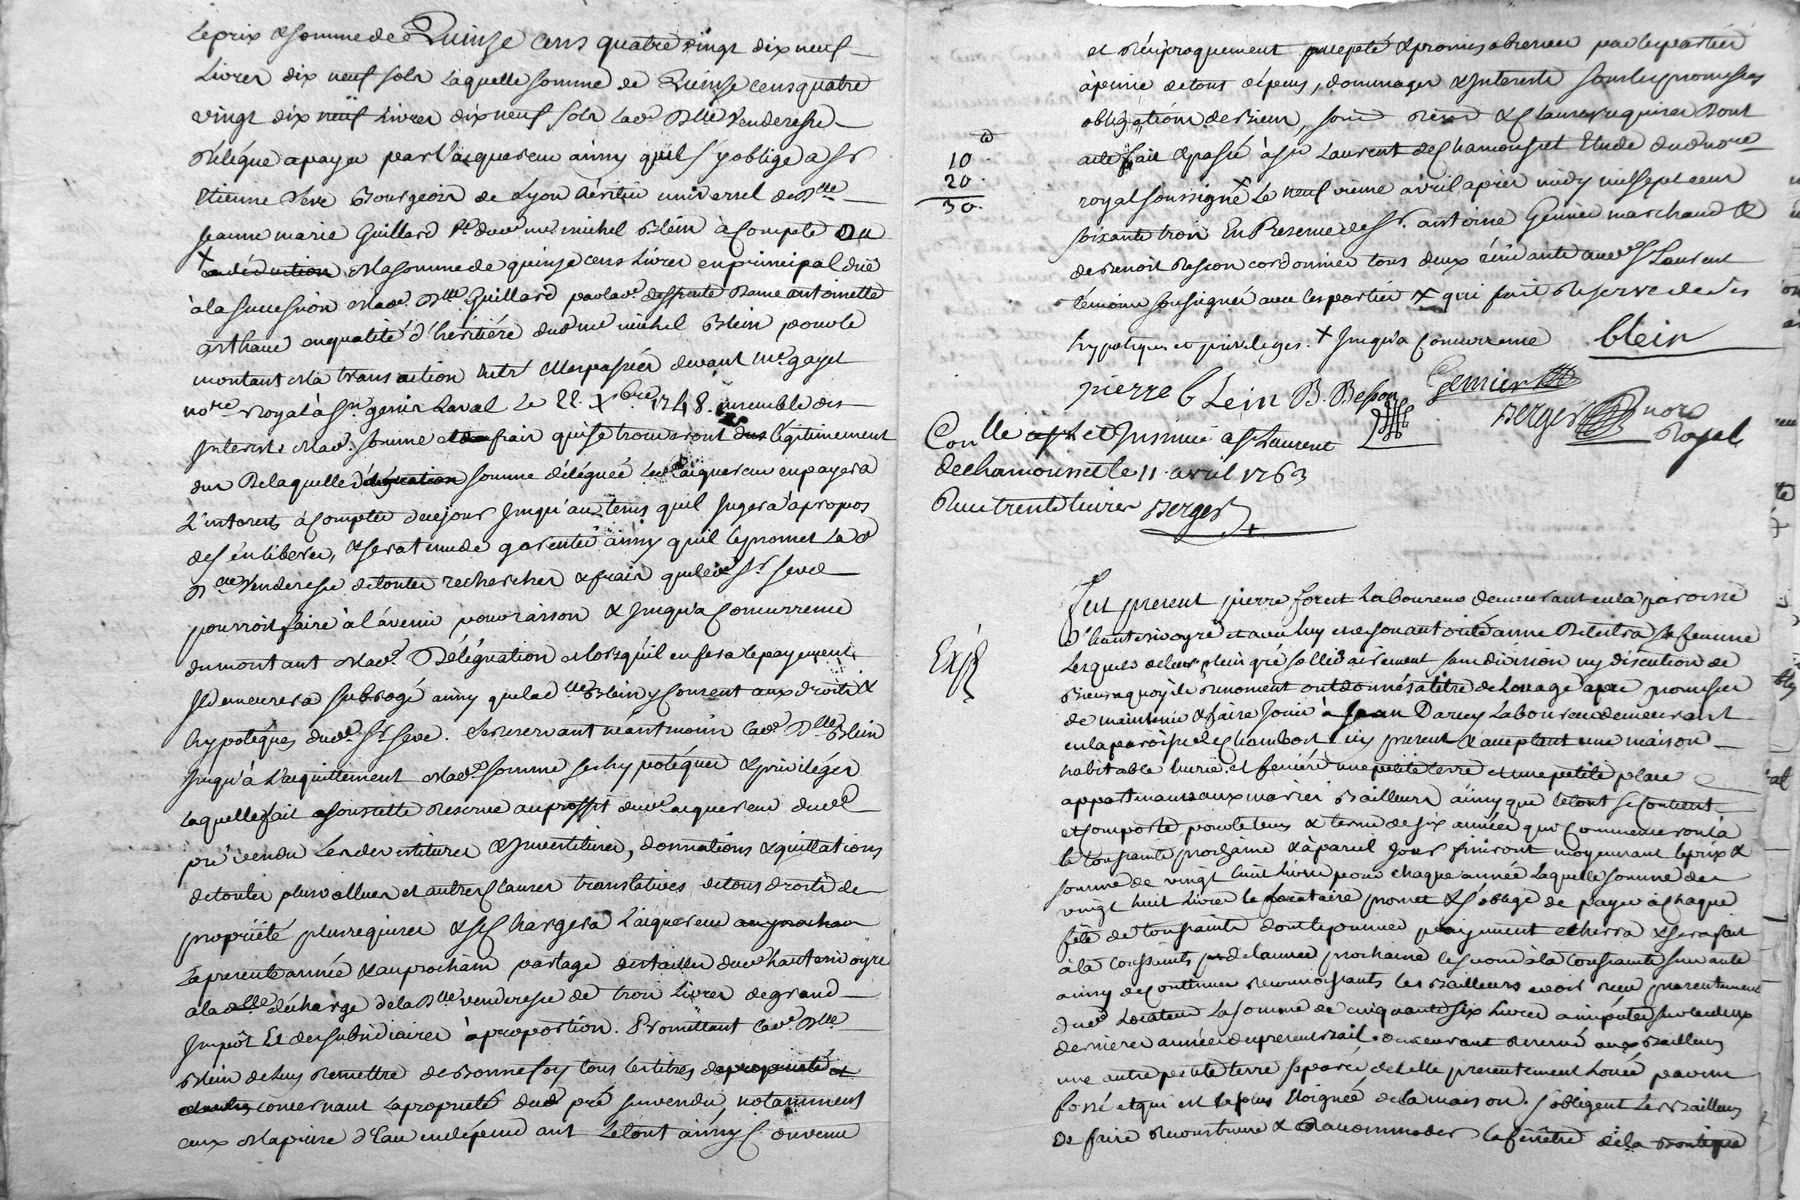 le prix & somme de Quinze cens quatre vingt dix neuf
Livres dix neuf sols laquelle somme de Quinze cens quatre
vingt dix neuf Livres dix neuf sols lad. Dlle Venderesse
délégue a payer par l'acquereur ainsy qu'il s'y oblige a Sr
Etienne Seve Bourgeois de Lyon héritier universel de Dlle
jeanne marie Guillard Ve dud. me michel Blein à Compte ou
en déduction de la somme de quinze cens Livres en principal dûe
à la succession de lad. Dlle Guillard par lad. deffunte Dame antoinette
arthaud en qualité d'héritiére dud. me michel Blein pour le
montant de la transaction entr'elles passées devant Me gayet
nore Royal à St genis Laval Le 22 Xbre 1748. ensemble des
Interets de lad. somme et frais qui se trouveront dus légitimement
dus de laquelle délégation somme déléguée led. acquereur en payera
L'interets à compter de ce jour jusqu'au tems qu'il jugera à propos
des'en libérer, & sera tenu de garentir ainsy qu'il le promet La d
Dlle Venderesse de toutes recherches & frais que led. Sr Seve
pourroit faire à l'avenir pour raison & jusqu'a Concurrence
du montant de lad. Délégation & lors qu'il en fera le payement
Il demeurera subrogé ainsy que lad. Dlle Blein y consent aux droits &
hypotéques dud. Sr Seve. Se reservant néantmoins lad. Dlle Blein
jusqu'à L'acquittement de lad. somme ses hypotéques & priviléges
laquelle fait sous cette Reserve au proffit dud. acquereur dud.
pré vendu les devestitures & Investitures, donnations & quittations
de toutes plus vallues et autres Clauses translatives de tous droits de
propriété plus requises & se Chargera L'acquereur au prochain
la presente année & au prochain partage des tailles dud. hauterivoyre
a la décharge de la Dlle venderesse de trois Livres de grand
Impôt Et des subsidiaires à proportion. Promettant lad. Dlle
Blein de luy Remettre de Bonne foy tous les titres de propriété et
concernant la propriété dud. pré survendu, notamment
aux de la prise d'Eau en dépend ant Le tout ainsy Convenu
et Réciproquement accepté & promis observer par les parties
à peine de tous dépens, dommages & Interets sous les promesses
obligations de Biens, & Clauses requises Dont
acte fait & passé à St Laurent de Chamousset Etude du nore
royal soussigné Le neuf vieme avril après midy mil sept cens
soixante trois En Presence de Sr. antoine Genier marchand &
de Benoit Besson cordonnier tous deux résidants aud. St Laurent
témoins soussignés avec les parties X qui fait Reserve de des
hypotiques et privileges. X jusqu'a Concurrence
10
20
30
blein
pierre blein B. Besson Genier
Berger nore
Royal
Conlle et Insinué a St Laurent
de chamousset le 11. avril 1763
Recu trente livres Berger
Exp.
Fut present pierre forest Laboureur demeurant en la paroisse
d'hauterivoyre et avec luy et de son autorité anne sa femme
Lesquels de leur plein gré sollidairement sans division ny discution de
Biens a quoy ils Renoncent ont donnés à titre de Louage avec promesse
de maintenir & faire jouir à Jean Darcy Laboureur demeurant
en la paroisse de Chambost icy present & acceptant une maison
habitable une petite terre et une petite place
appartenants aux mariés Bailleurs ainsy que le tout se Contient
et comporte pour le tems & terme de six années qui Commenceront à
la toussaints prochaine & à pareil jour finiront moyennant le prix &
somme de vingt huit Livres pour chaque année Laquelle somme de
vingt huit Livres le Locataire promet & s'oblige de payer à chaque
fête de toussaints dont le premier payement echerra & sera fait
à la toussaints de l'année prochaine le second à la toussaints suivante
ainsy de Continuer Reconnoissants les Bailleurs avoir reçu presentement
dud. Locataire La somme de cinquante six Livres a imputer sur les deux
dernieres années du present Bail. demeurant Reservé aux Bailleurs
une autre petite terre separée de celle presentement Louée par un
fossé et qui est la plus Eloignée de la maison. s'obligent Les Bailleurs
de faire Reconstruire & Raccommoder la fenêtre de la Boutique